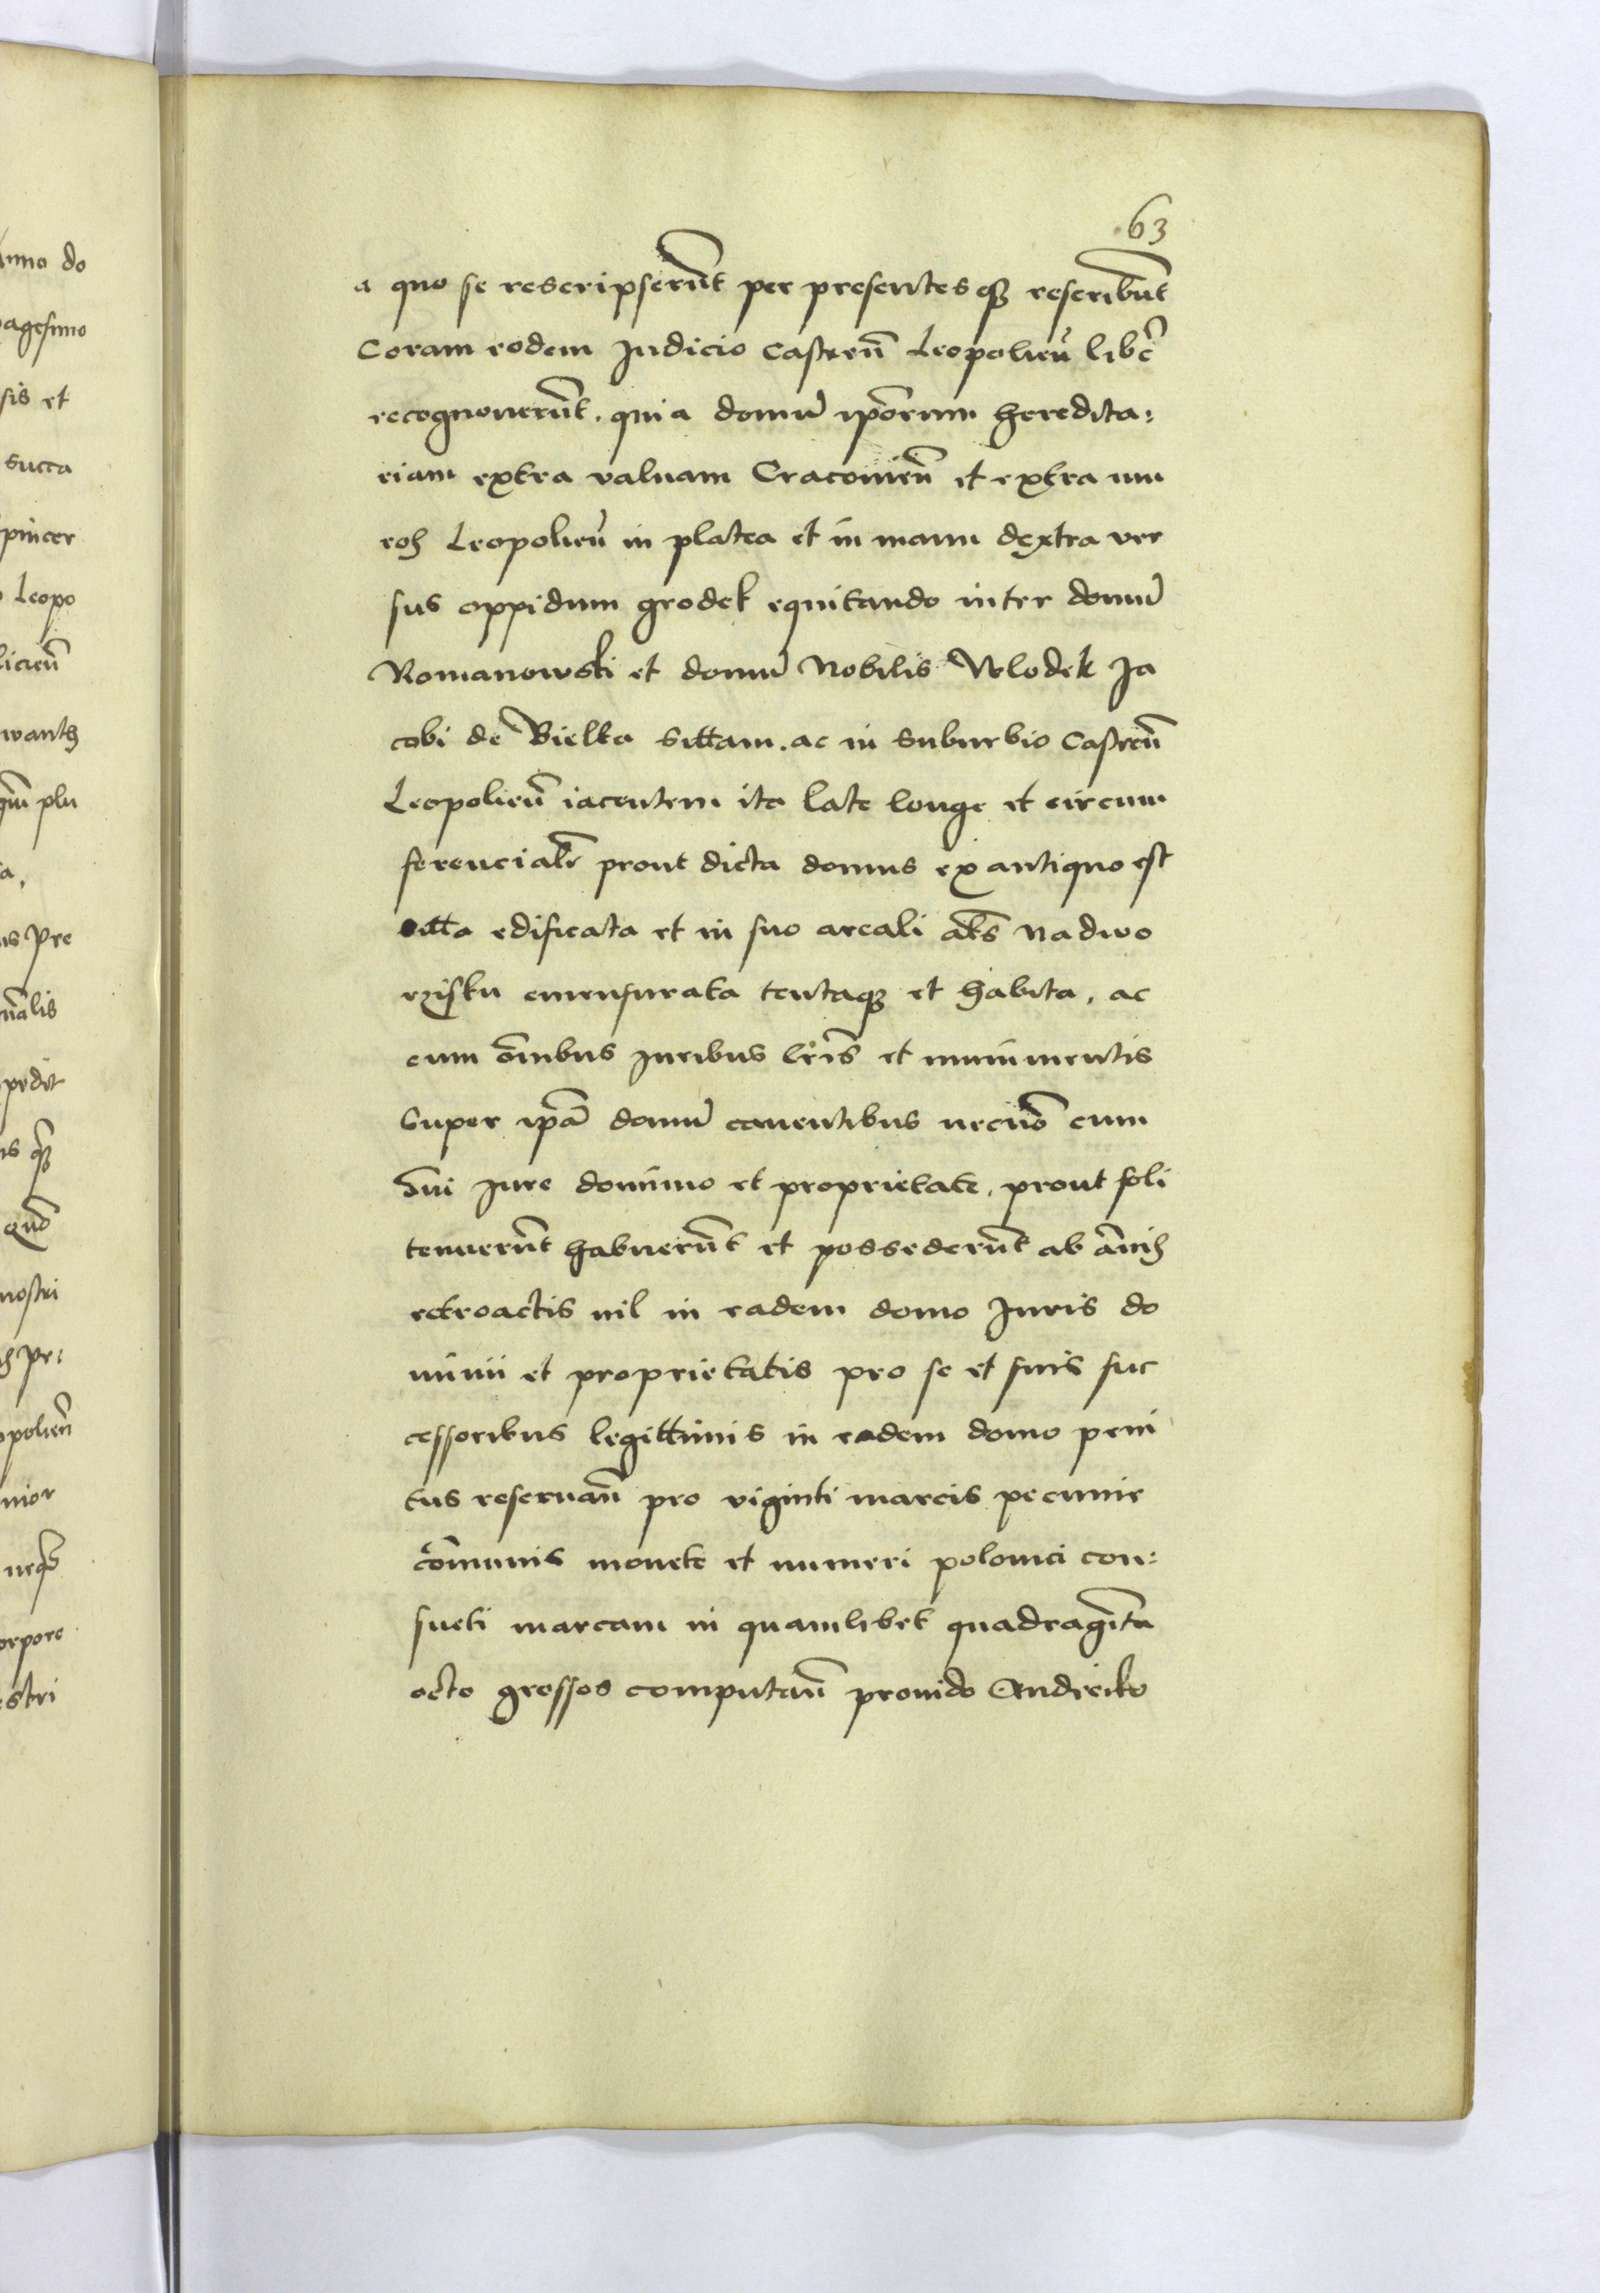 63
a quo se rescripserūt per presentes q3 rescribūt
Coram eodem Judicio Castreñ Leopolieñ libē
recognouerūt. quia domū ip̄orum heredita:
riam extra valuam Cracouieñ et extra mu
ros Leopolieñ in platea et in manu dextra ver
sus oppidum grodek equitando inter domū
Romanowski et domū Nobilis Wlodek Ja
cobi de Bielka sittam. ac in suburbio Castreñ
Leopolieñ iacentem ita late longe et circum
ferencialr̄ prout dicta domus ex antiquo est
sitta edificata et in suo areali als̄ nadwo
rzisku emensurata tentaq3 et habita, ac
cum om̄ibus Juribus lr̄is et munimentis
Super ip̄ā domū canentibus necnō cum
om̄i Jure dominio et proprietate, prout soli
tenuerūt habuerūt et possederūt ab ānis
retroactis nil in eadem domo Juris do
minii et proprietatis pro se et suis suc
cessoribus legittimis in eadem domo peni
tus reseruañ pro viginti marcis pecunie
cōmunis monete et numeri polonici con:
sueti marcam in quamlibet quadragīta
octo grossos computañ prouido Andreiko
nno do
agesimo
sis et
succa
pincer
Leopo
licieñ
wanth
plu
a,
us pre
ñalis
pedit
is
nostri
pr:
opolieñ
nior
orpore
estri